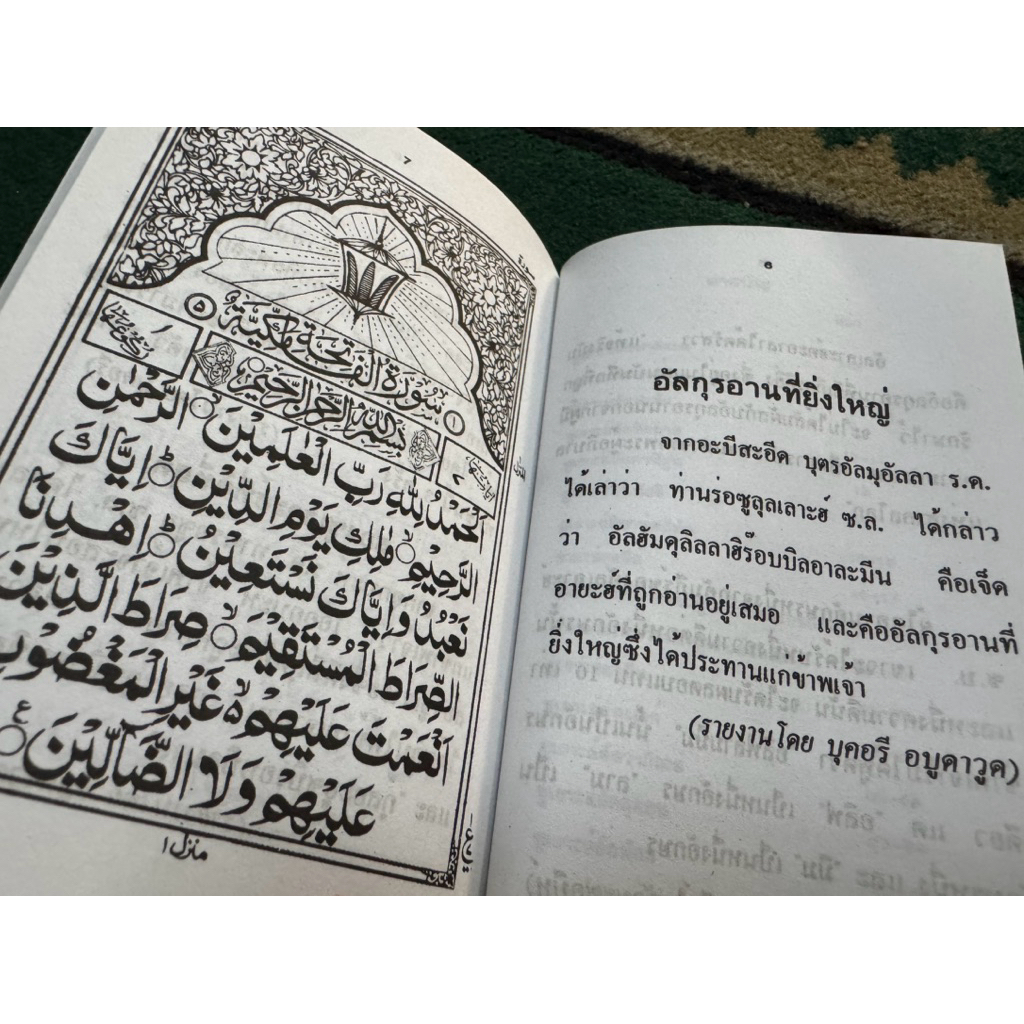 ٧
سُوْرَةُ الْفَاتِحَةِ مَكِّيَّةٌ
بِسْمِ اللّٰهِ الرَّحْمٰنِ الرَّحِيْمِ
اَلْحَمْدُ لِلّٰهِ رَبِّ الْعٰلَمِيْنَ ۙ الرَّحْمٰنِ
الرَّحِيْمِ ۙ مٰلِكِ يَوْمِ الدِّيْنِ ؕ اِيَّاكَ
نَعْبُدُ وَاِيَّاكَ نَسْتَعِيْنُ ؕ اِهْدِنَا
الصِّرَاطَ الْمُسْتَقِيْمَ ۙ صِرَاطَ الَّذِيْنَ
اَنْعَمْتَ عَلَيْهِمْ ۙ غَيْرِ الْمَغْضُوْبِ
عَلَيْهِمْ وَلَا الضَّآلِّيْنَ
منزل ١
6
อัลกุรอานที่ยิ่งใหญ่
จากอะบีสะอีด บุตรอัลมุอัลลา ร.ด.
ได้เล่าว่า ท่านร่อซูลุลเลาะฮ์ ซ.ล. ได้กล่าว
ว่า อัลฮัมดุลิลลาฮิร๊อบบิลอาละมีน คือเจ็ด
อายะฮ์ที่ถูกอ่านอยู่เสมอ และคืออัลกุรอานที่
ยิ่งใหญ่ซึ่งได้ประทานแก่ข้าพเจ้า
(รายงานโดย บุคอรี อบูดาวูด)